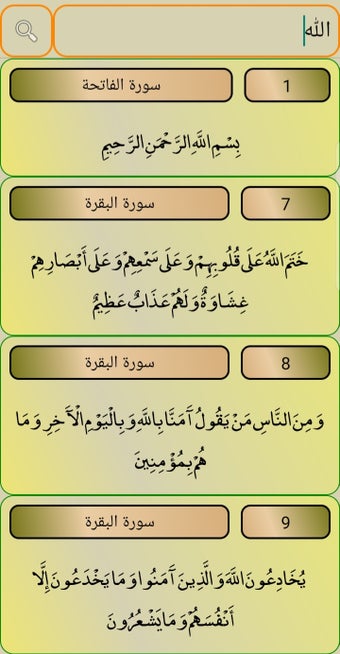 الله
سورة الفاتحة 1
بِسْمِ اللَّهِ الرَّحْمَنِ الرَّحِيمِ
سورة البقرة 7
خَتَمَ اللَّهُ عَلَى قُلُوبِهِمْ وَعَلَى سَمْعِهِمْ وَعَلَى أَبْصَارِهِمْ
غِشَاوَةٌ وَلَهُمْ عَذَابٌ عَظِيمٌ
سورة البقرة 8
وَمِنَ النَّاسِ مَنْ يَقُولُ آَمَنَّا بِاللَّهِ وَبِالْيَوْمِ الْآَخِرِ وَمَا
هُمْ بِمُؤْمِنِينَ
سورة البقرة 9
يُخَادِعُونَ اللَّهَ وَالَّذِينَ آَمَنُوا وَمَا يَخْدَعُونَ إِلَّا
أَنْفُسَهُمْ وَمَا يَشْعُرُونَ